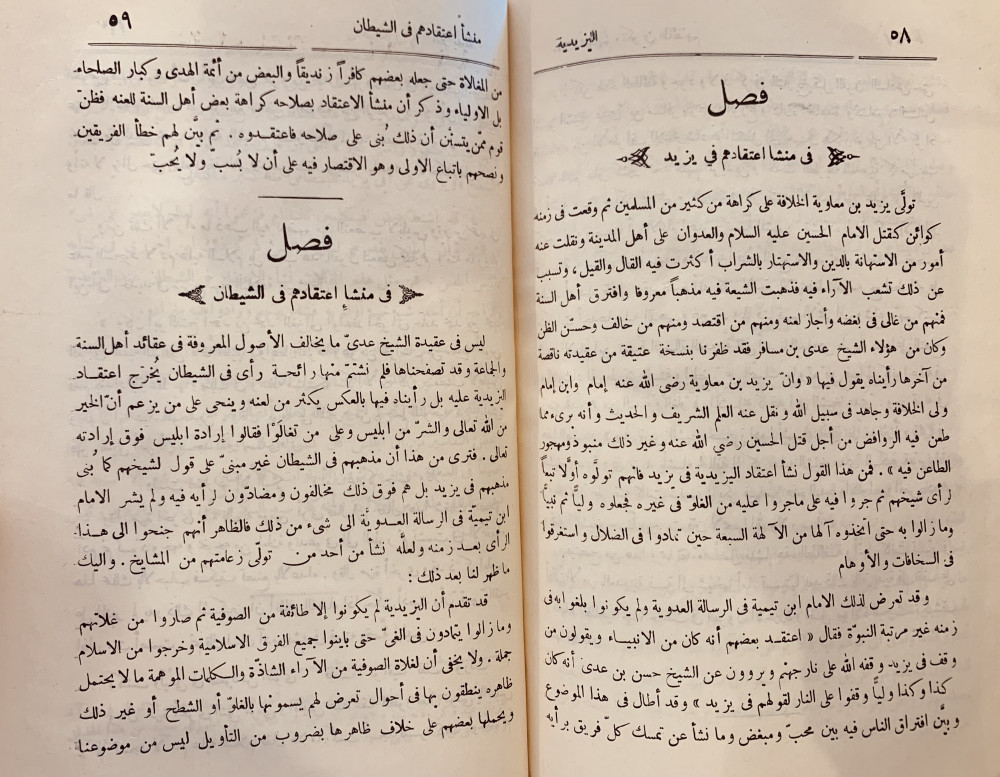 ٥٨
اليزيدية
فصل
فى منشا اعتقادهم في يزيد
تولَّى يزيد بن معاوية الخلافة على كراهة من كثير من المسلمين ثم وقعت فى زمنه
كوائن كقتل الامام الحسين عليه السلام والعدوان على أهل المدينة ونقلت عنه
أمور من الاستهانة بالدين والاستهتار بالشراب أكثرت فيه القال والقيل ، وتسبب
عن ذلك تشعب الآراء فيه فذهبت الشيعة فيه مذهباً معروفا وافترق أهل السنة
فمنهم من غالى فى بغضه وأجاز لعنه ومنهم من اقتصد ومنهم من خالف وحسّن الظن
وكان من هؤلاء الشيخ عدى بن مسافر فقد ظفرنا بنسخة عتيقة من عقيدته ناقصة
من آخرها رأيناه يقول فيها « وانّ يزيد بن معاوية رضى الله عنه إمام وابن إمام
ولى الخلافة وجاهد فى سبيل الله ونقل عنه العلم الشريف والحديث وأنه برىء مما
طعن فيه الروافض من أجل قتل الحسين رضي الله عنه وغير ذلك منبوذ ومهجور
الطاعن فيه » . فمن هذا القول نشأ اعتقاد اليزيدية فى يزيد فانهم تولّوه أوّلا تبعاً
لرأى شيخهم ثم جروا فيه على ماجروا عليه من الغلوّ فى غيره فجعلوه ولياً ثم نبياً
وما زالوا به حتى اتخذوه آلها من الآلهة السبعة حين تمادوا فى الضلال واستغرقوا
فى السخافات والأوهام
وقد تعرض لذلك الامام ابن تيمية فى الرسالة العدوية ولم يكونوا بلغوا به فى
زمنه غير مرتبة النبوّة فقال « اعتقد بعضهم أنه كان من الانبياء ويقولون من
وقف فى يزيد وقفه الله على نارجهنم ويروون عن الشيخ حسن بن عدى أنه كان
كذا وكذا ولياً وقفوا على النار لقولهم فى يزيد » وقد أطال فى هذا الموضوع
وبيَّن افتراق الناس فيه بين محبّ ومبغض وما نشأ عن تمسك كلّ فريق برأيه
منشأ اعتقادهم فى الشيطان
٥٩
من المغالاة حتى جعله بعضهم كافراً زنديقاً والبعض من أئمة الهدى وكبار الصلحاء
بل الاولياء وذكر أن منشأ الاعتقاد بصلاحه كراهة بعض أهل السنة للعنه فظنّ
قوم ممّن يتسنّن أن ذلك بُنى على صلاحه فاعتقدوه . ثم بيَّن لهم خطأ الفريقين
ونصحهم باتباع الاولى وهو الاقتصار فيه على أن لا نُسب ولا يُحبّ
فصل
فى منشإ اعتقادهم فى الشيطان
ليس فى عقيدة الشيخ عدىّ ما يخالف الأصول المعروفة فى عقائد أهل السنة
والجماعة وقد تصفحناها فلم نشتمّ منها رائحة رأى فى الشيطان يُخرّج اعتقاد
اليزيدية عليه بل رأيناه فيها بالعكس يكثر من لعنه وينحى على من يزعم أنّ الخير
من الله تعالى والشرّ من ابليس وعلى من تغالَوْا فقالوا إرادة ابليس فوق إرادته
تعالى . فترى من هذا أن مذهبهم فى الشيطان غير مبنىّ على قول لشيخهم كما بُنى
مذهبهم فى يزيد بل هم فوق ذلك مخالفون ومضادّون لرأيه فيه ولم يشر الامام
ابن تيميّة فى الرسالة العدويَّة الى شىء من ذلك فالظاهر أنهم جنحوا الى هذا
الرأى بعد زمنه ولعلَّه نشأ من أحد من تولّى زعامتهم من المشايخ . واليك
ما ظهر لنا بعد ذلك :
قد تقدم أن اليزيدية لم يكونوا إلا طائفة من الصوفية ثم صاروا من غلاتهم
وما زالوا يتمادون فى الغىّ حتى باينوا جميع الفرق الاسلامية وخرجوا من الاسلام
جملة . ولا يخفى أن لغلاة الصوفية من الآراء الشاذّة والكلمات الموهمة ما لا يحتمل
ظاهره ينطقون بها فى أحوال تعرض لهم يسمونها بالغلوّ أو الشطح أو غير ذلك
ويحملها بعضهم على خلاف ظاهرها بضروب من التأويل ليس من موضوعنا